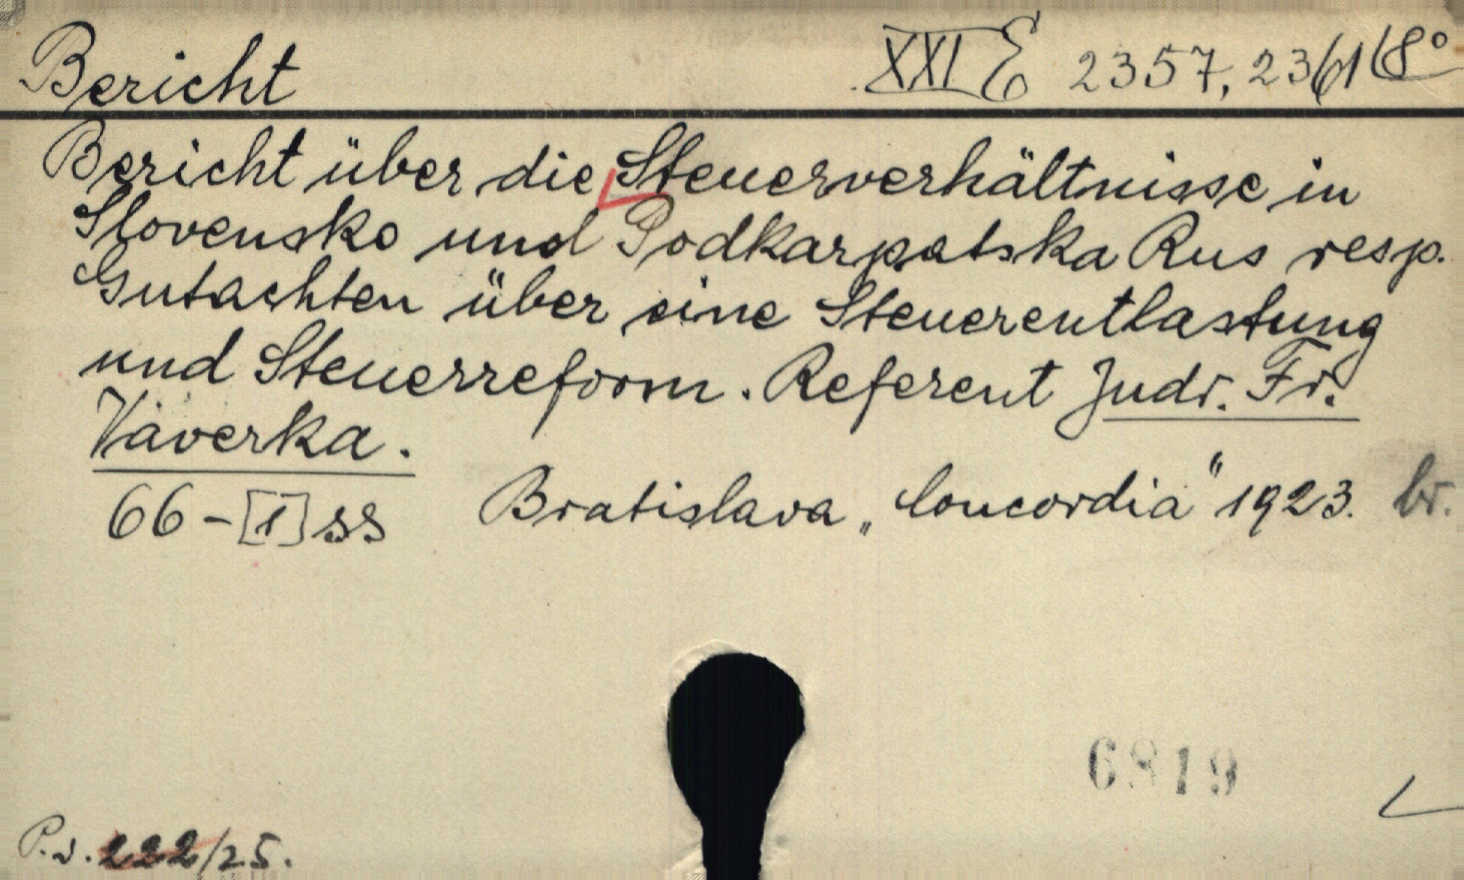 Bericht XXI E 2357, 2361 (8°
Bericht über die Steuerverhältnisse in
Slovensko und Podkarpatska Rus resp.
Gutachten über eine Steuerentlastung
und Steuerreform. Referent Judr. Fr.
Vaverka.
66-[1] ss Bratislava „Concordia" 1923. br.
6819
P.v. 222/25.